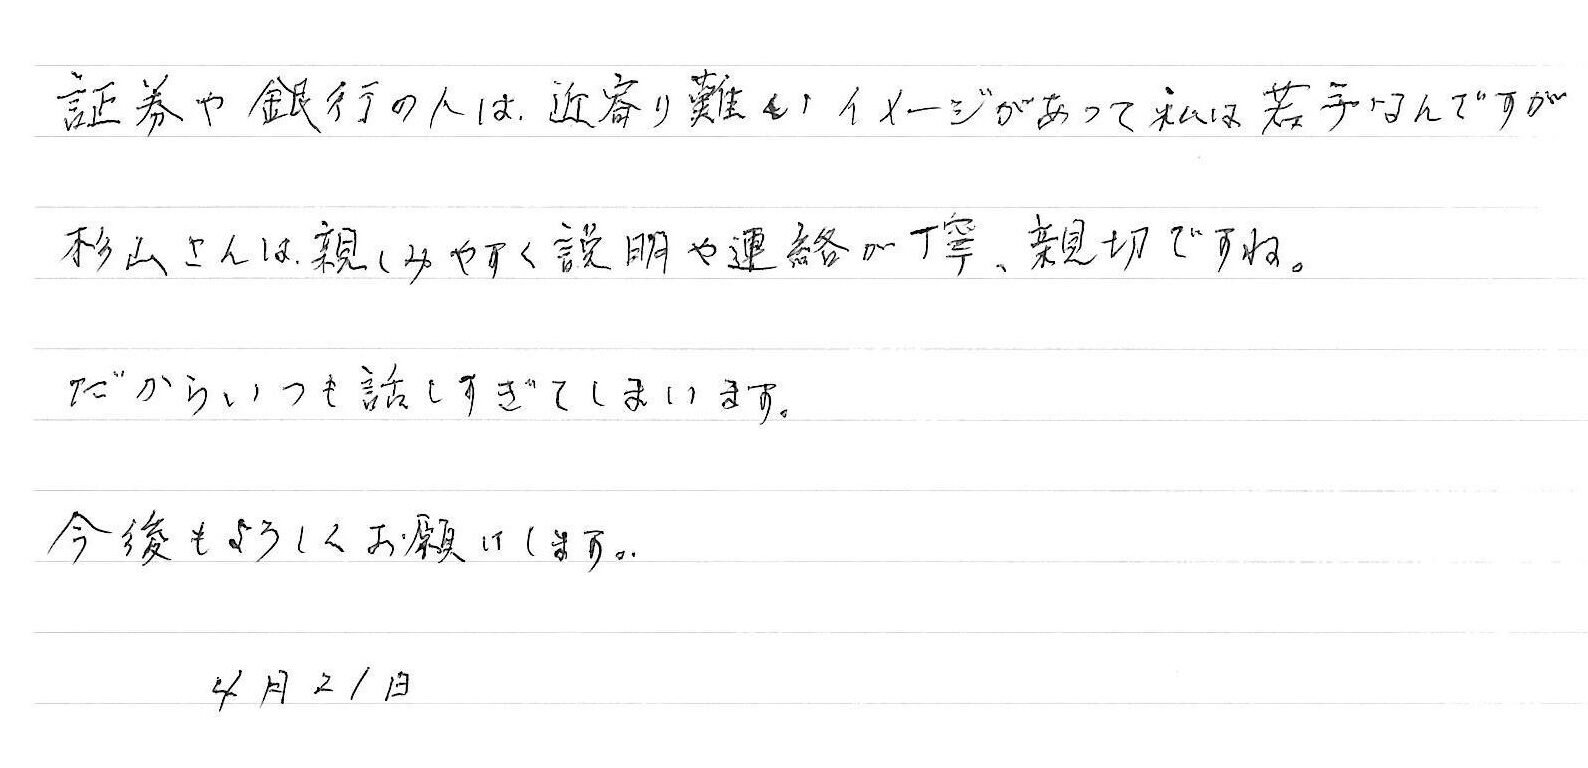 証券や銀行の人は、近寄り難いイメージがあって私は苦手なんですが
杉山さんは、親しみやすく説明や連絡が丁寧、親切ですね。
だからいつも話しすぎてしまいます。
今後もよろしくお願いします。
4月21日